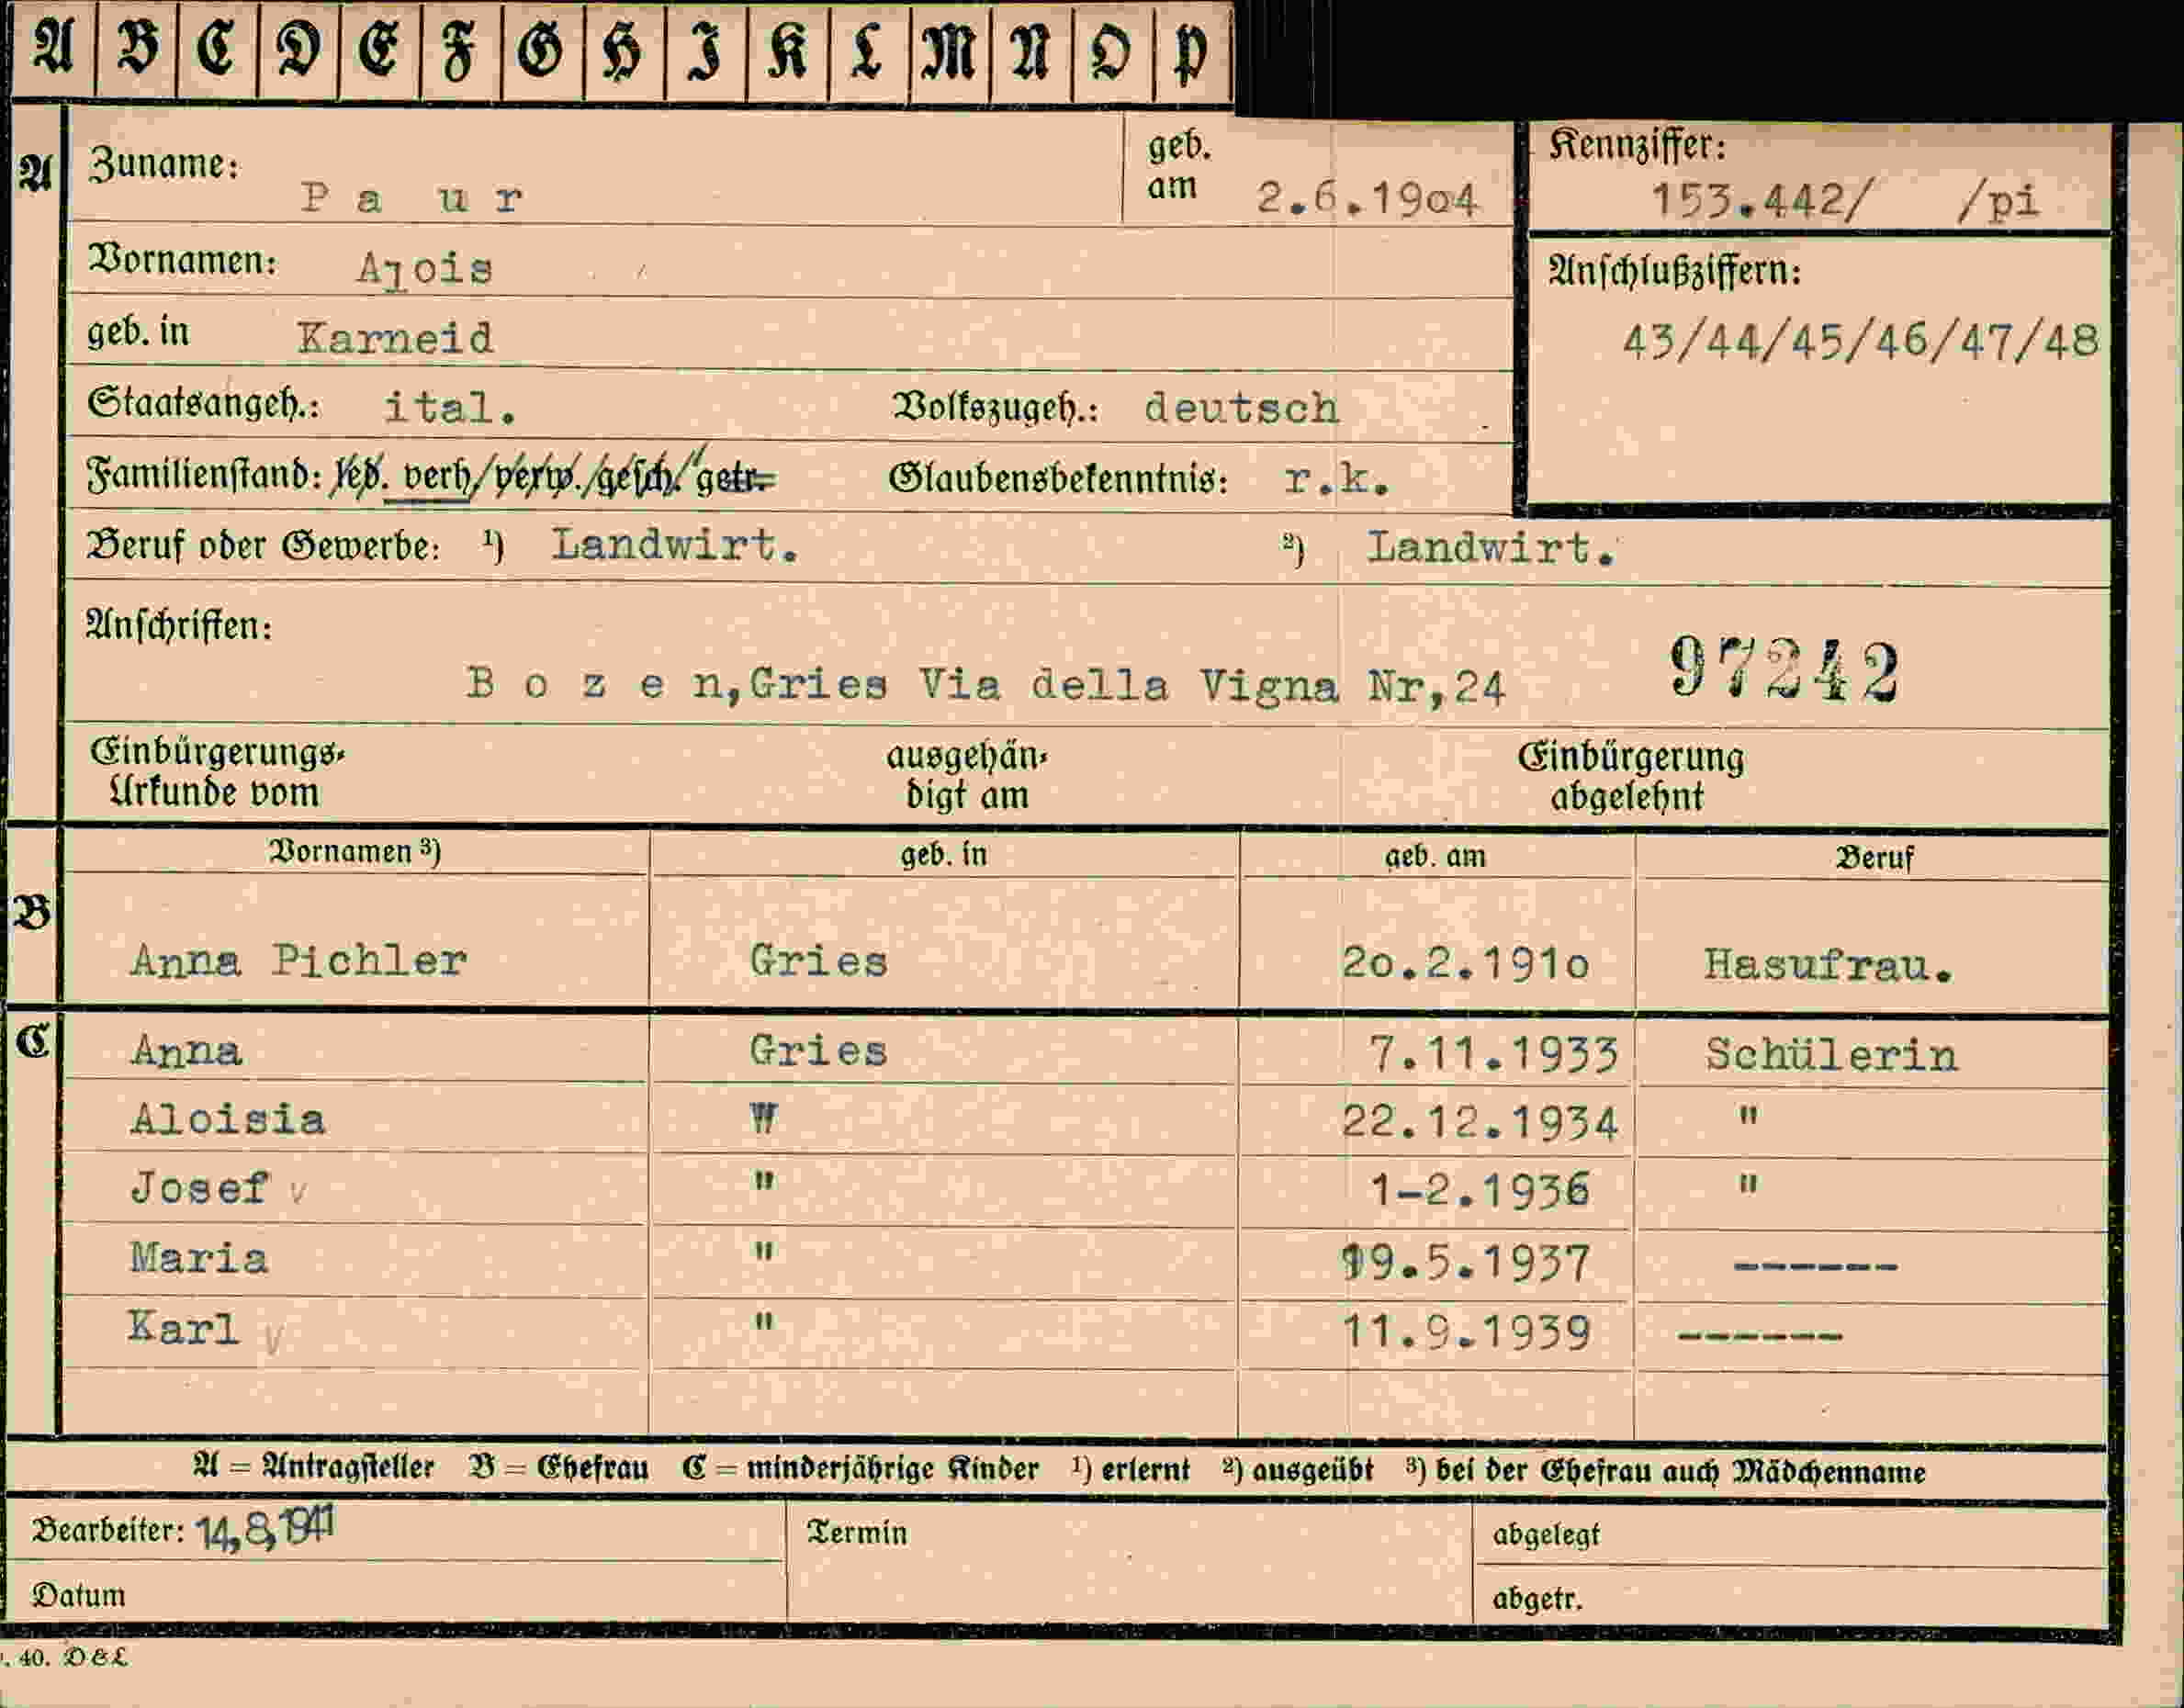 A B C D E F G H I K L M N O P
A Zuname: P a u r geb. am 2.6.1904 Kennziffer: 153.442/ /pi
Vornamen: Alois Anschlußziffern:
geb. in Karneid 43/44/45/46/47/48
Staatsangeh.: ital. Volkszugeh.: deutsch
Familienstand: led. verh/verw./gesch./getr. Glaubensbekenntnis: r.k.
Beruf oder Gewerbe: ¹) Landwirt. ²) Landwirt.
Anschriften:
B o z e n,Gries Via della Vigna Nr,24 97242
Einbürgerungs- ausgehän- Einbürgerung
Urkunde vom digt am abgelehnt
Vornamen ³) geb. in geb. am Beruf
B Anna Pichler Gries 20.2.1910 Hasufrau.
C Anna Gries 7.11.1933 Schülerin
Aloisia " 22.12.1934 "
Josef v " 1-2.1936 "
Maria " 19.5.1937 ------
Karl v " 11.9.1939 ------
A = Antragsteller B = Ehefrau C = minderjährige Kinder ¹) erlernt ²) ausgeübt ³) bei der Ehefrau auch Mädchenname
Bearbeiter: 14,8,1941 Termin abgelegt
Datum abgetr.
. 40. D & L